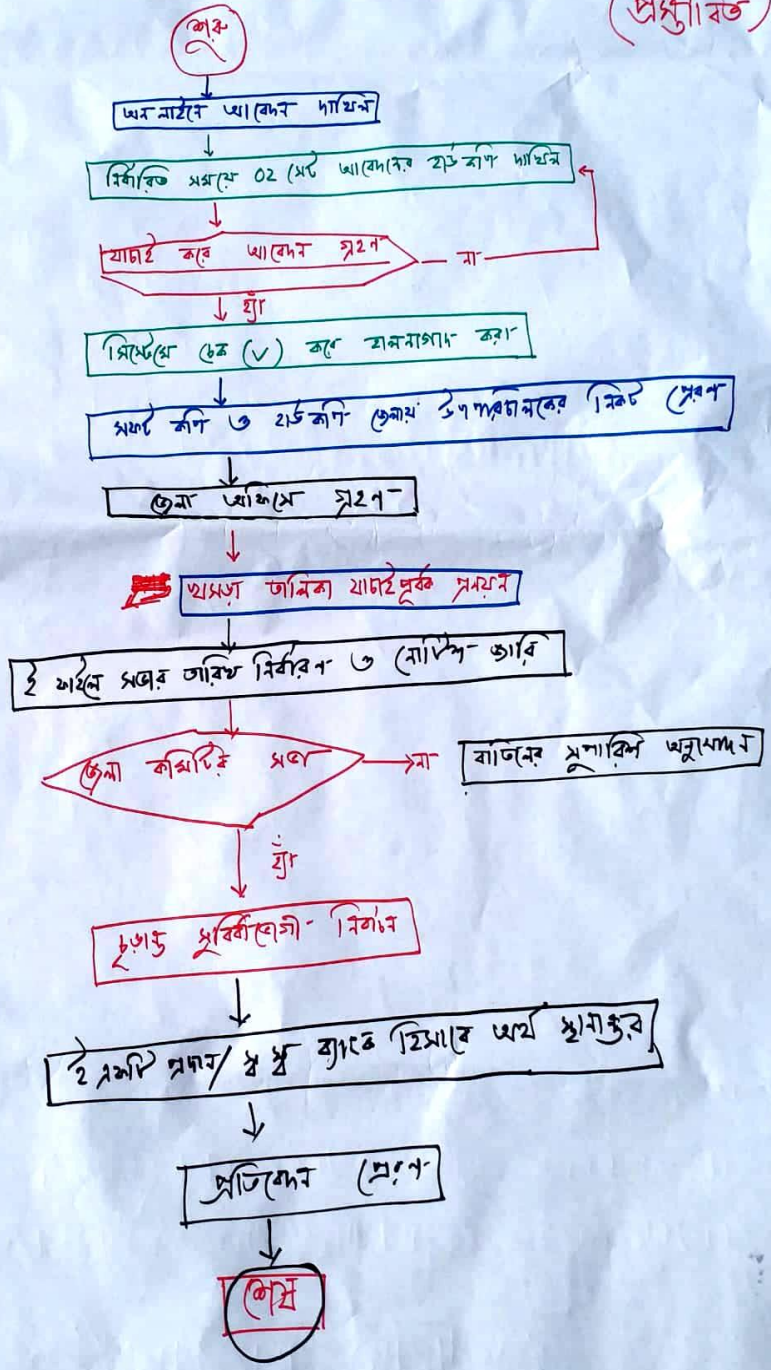 (প্রস্তাবিত)
শুরু
অনলাইনে আবেদন দাখিল
নির্ধারিত সময়ে ০২ সেট আবেদনের হার্ড কপি দাখিল
যাচাই করে আবেদন গ্রহণ
না
হ্যাঁ
সিস্টেমে চেক (√) করে হালনাগাদ করা
সফট কপি ও হার্ড কপি জেলায় উপপরিচালকের নিকট প্রেরণ
জেলা অফিসে গ্রহণ
খসড়া তালিকা যাচাই পূর্বক প্রনয়ন
ই ফাইলে সভার তারিখ নির্ধারণ ও নোটিশ জারি
জেলা কমিটির সভা
না
বাতিলের সুপারিশ অনুমোদন
হ্যাঁ
চূড়ান্ত সুবিধাভোগী নির্বাচন
ই এফটি প্রদান/ স্ব স্ব ব্যাংক হিসাবে অর্থ স্থানান্তর
প্রতিবেদন প্রেরণ
শেষ